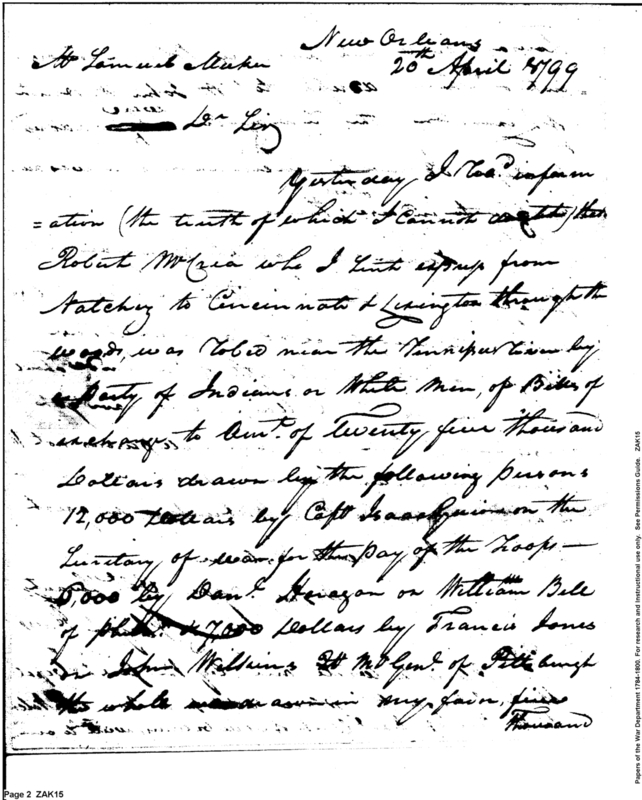 New Orleans
20th April 1799
Mr Samuel Meeker
Dr Sir
Yesterday I Recd inform
=ation (the truth of which I cannot doubt) that
Robert McCrea who I sent express from
Natchez to Cincinnati & Lexington through the
woods, was Robed near the Tennissee River by
a Party of Indians or White Men, of Bills of
exchange to Amt. of Twenty five thousand
Dollars drawn by the following persons
12,000 Dollars by Capt Isaac Guion on the
Secretary of war for the Pay of the Troops —
6,000 by Danl. on William Bell
of Phila. & 7,000 Dollars by Francis Jones
on John Wilkins Qt Mr Genl. of Pittsburgh
the whole drawn in my favor, five
thousand
Page 2 ZAK15
Papers of the War Department 1784-1800. For research and instructional use only. See Permissions Guide. ZAK15